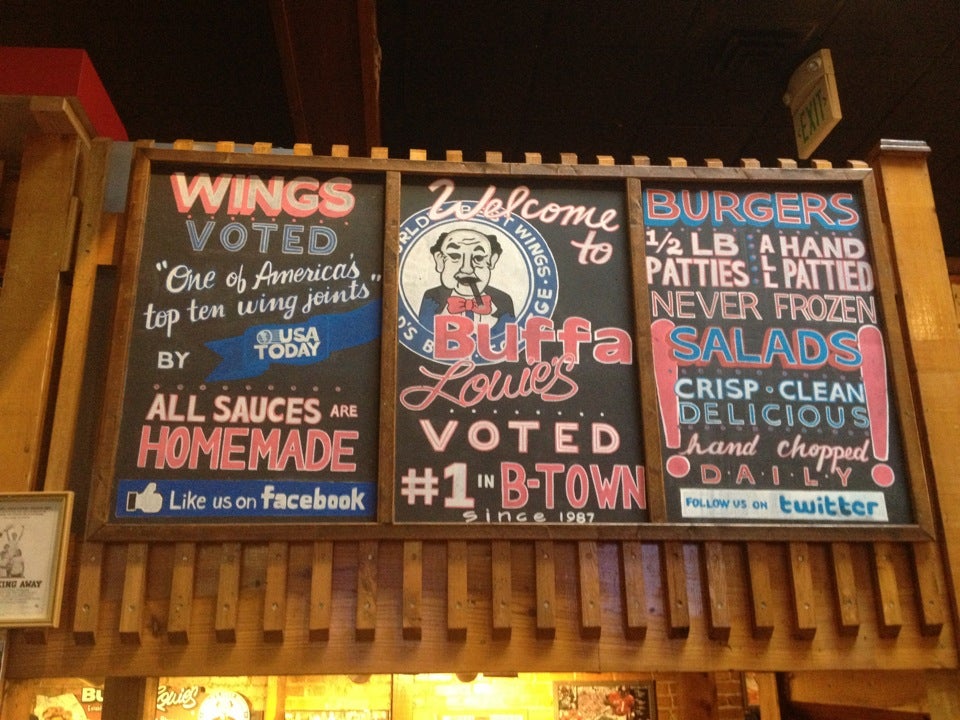 WINGS
VOTED
"One of America's
top ten wing joints"
BY USA
TODAY
ALL SAUCES ARE
HOMEMADE
Like us on facebook
Welcome
to
WINGS
Buffa
Louie's
VOTED
#1 IN B-TOWN
since 1987
BURGERS
1/2 LB
PATTIES
ALL
HAND
PATTIED
NEVER FROZEN
SALADS
CRISP · CLEAN
DELICIOUS
hand chopped
D·A·I·L·Y
FOLLOW US ON twitter
EXIT
KING AWAY
BU
Louie's